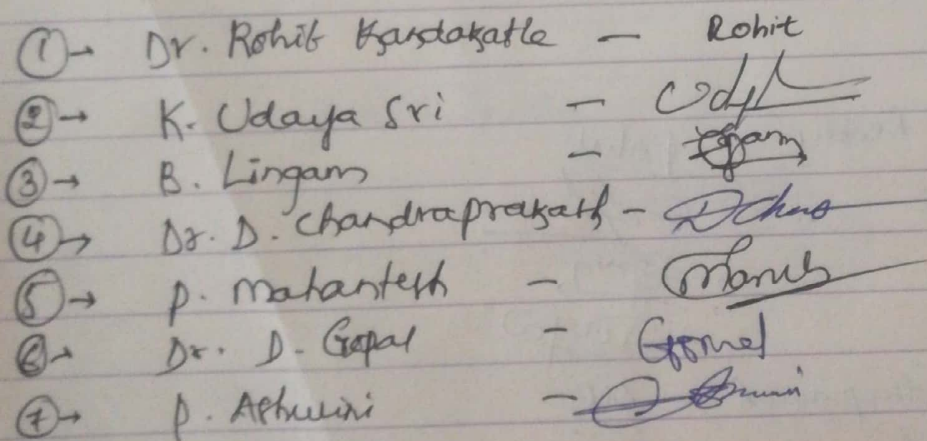 ① → Dr. Rohit Kandakatle - Rohit
② → K. Udaya Sri -
③ → B. Lingam -
④ → Dr. D. Chandraprakash -
⑤ → P. Mahantesh -
⑥ → Dr. D. Gopal -
⑦ → P. Ashwini -